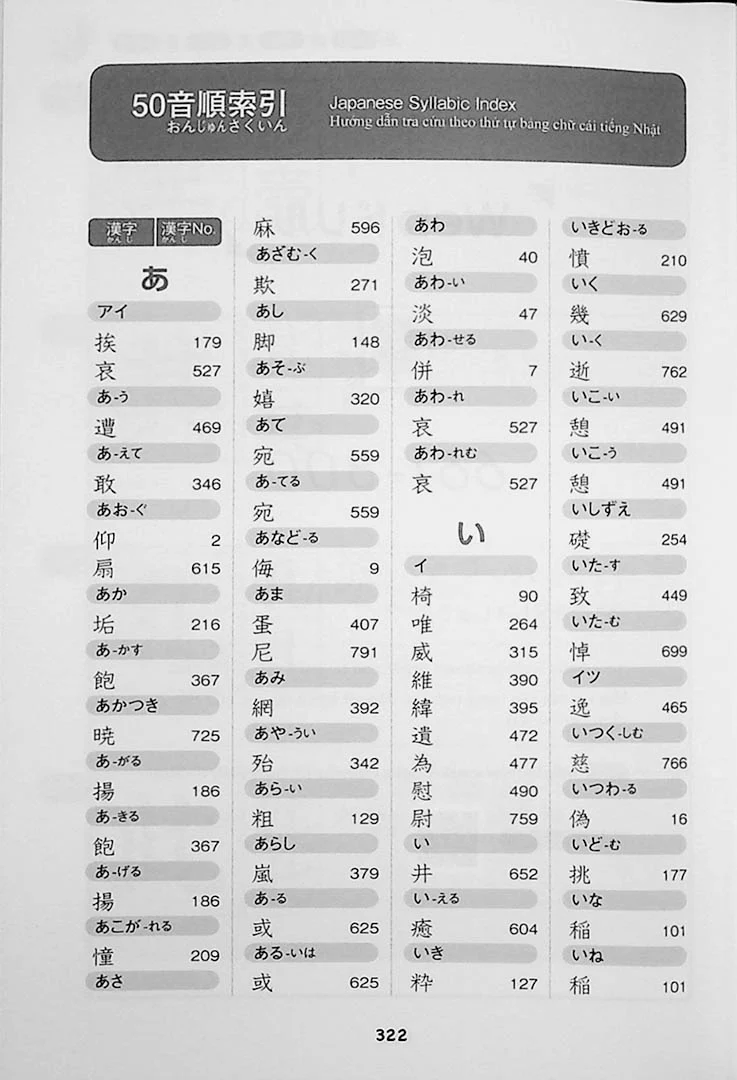 50音順索引
おんじゅんさくいん
Japanese Syllabic Index
Hướng dẫn tra cứu theo thứ tự bảng chữ cái tiếng Nhật
漢字 漢字No.
かんじ かんじ
あ
アイ
挨 179
哀 527
あ-う
遭 469
あ-えて
敢 346
あお-ぐ
仰 2
扇 615
あか
垢 216
あ-かす
飽 367
あかつき
暁 725
あ-がる
揚 186
あ-きる
飽 367
あ-げる
揚 186
あこが-れる
憧 209
あさ
麻 596
あざむ-く
欺 271
あし
脚 148
あそ-ぶ
嬉 320
あて
宛 559
あ-てる
宛 559
あなど-る
侮 9
あま
蛋 407
尼 791
あみ
網 392
あや-うい
殆 342
あら-い
粗 129
あらし
嵐 379
あ-る
或 625
ある-いは
或 625
あわ
泡 40
あわ-い
淡 47
あわ-せる
併 7
あわ-れ
哀 527
あわ-れむ
哀 527
い
イ
椅 90
唯 264
威 315
維 390
緯 395
遺 472
為 477
慰 490
尉 759
い
井 652
い-える
癒 604
いき
粋 127
いきどお-る
憤 210
いく
幾 629
い-く
逝 762
いこ-い
憩 491
いこ-う
憩 491
いしずえ
礎 254
いた-す
致 449
いた-む
悼 699
イツ
逸 465
いつく-しむ
慈 766
いつわ-る
偽 16
いど-む
挑 177
いな
稲 101
いね
稲 101
322